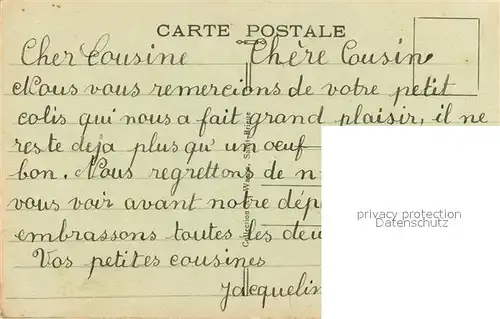 CARTE POSTALE
Cher Cousine Chère Cousine
Nous vous remercions de votre petit
colis qui nous a fait grand plaisir, il ne
reste deja plus qu'un oeuf
bon. Nous regrettons de n
vous voir avant notre dép
embrassons toutes les deu
Vos petites cousines
Jacquelin
privacy protection
Datenschutz